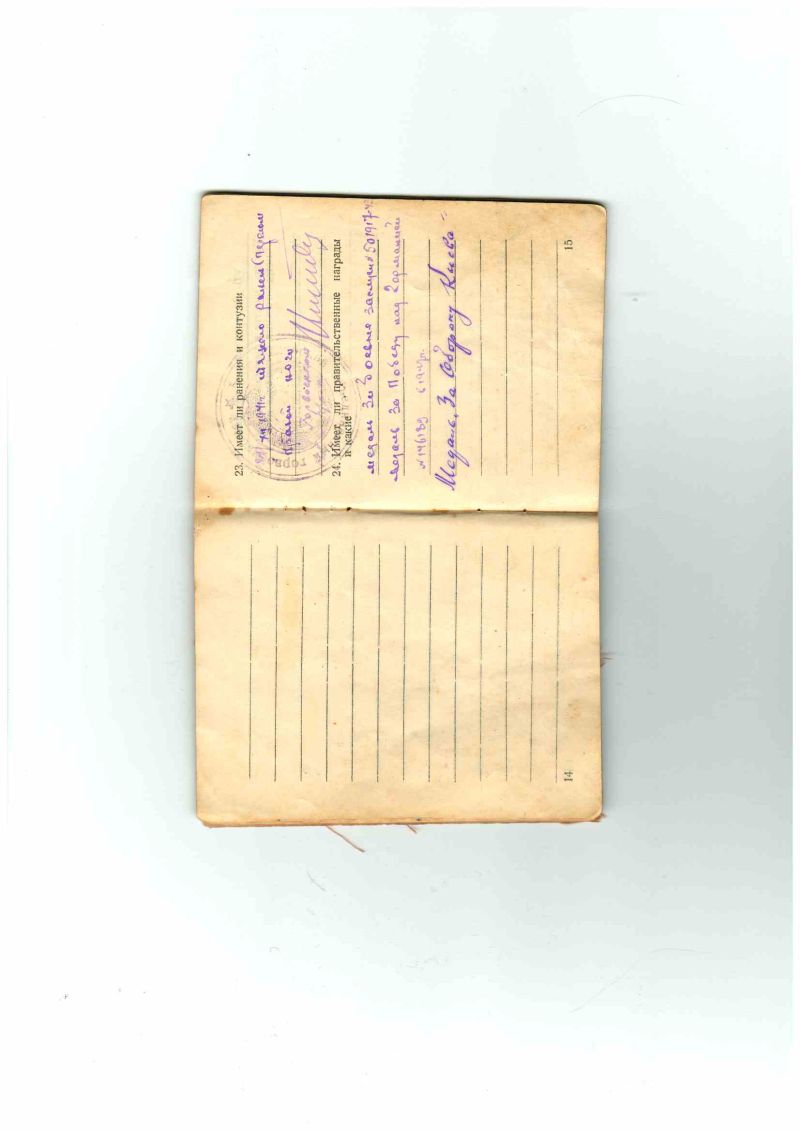 14
23. Имеет ли ранения и контузии
1941г. тяжело ранен (перелом
правой ноги
24. Имеет ли правительственные награды
и какие
медаль За боевые заслуги №501917-
медаль За Победу над Германией
№ 196189
Медаль „За Оборону Киева"
15